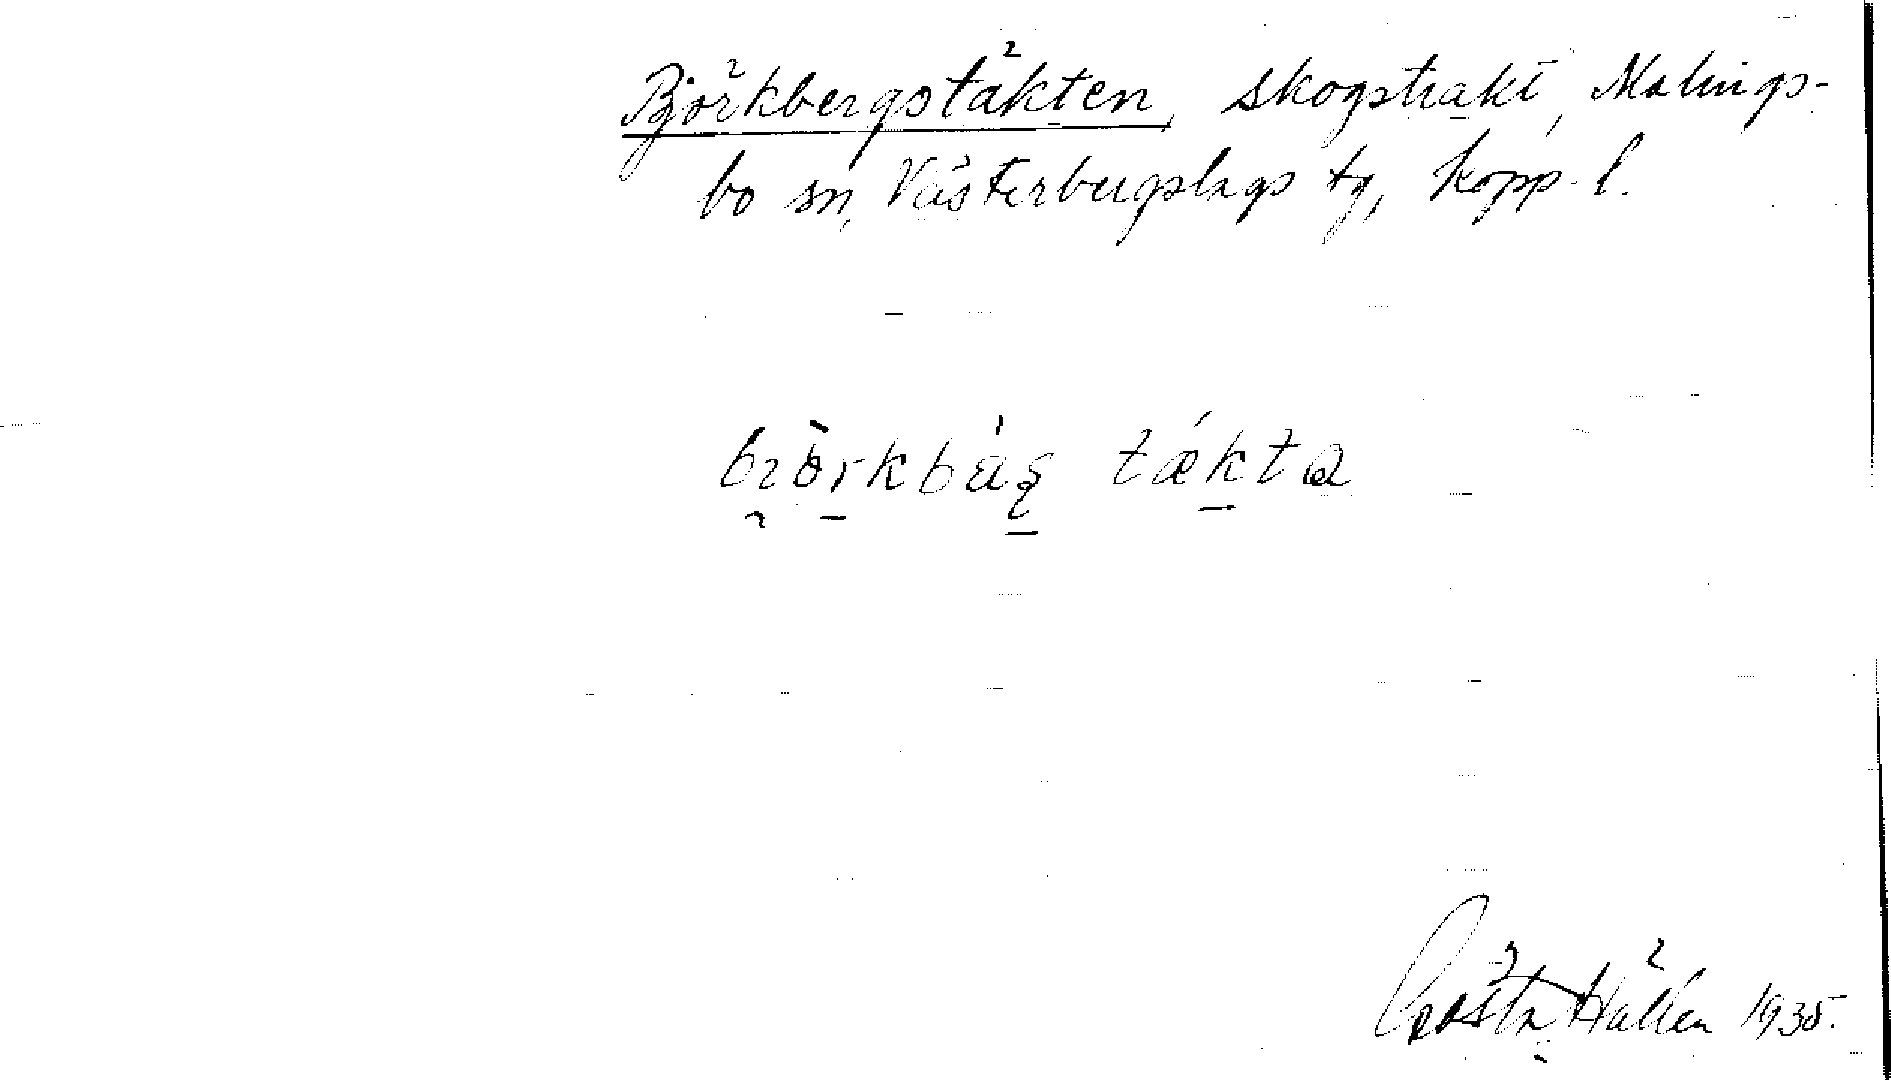 Björkbergstäkten, skogstrakt, Malings-
bo sn, Västerbergslags tg, Kopp. l.
Gösta Hallén 1935.